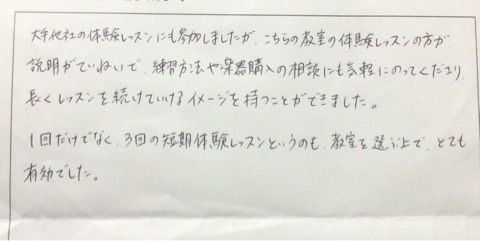 大手他社の体験レッスンにも参加しましたが、こちらの教室の体験レッスンの方が
説明がていねいで、練習方法や楽器購入の相談にも気軽にのってくださり、
長くレッスンを続けていけるイメージを持つことができました。
1回だけでなく、3回の短期体験レッスンというのも、教室を選ぶ上で、とても
有効でした。